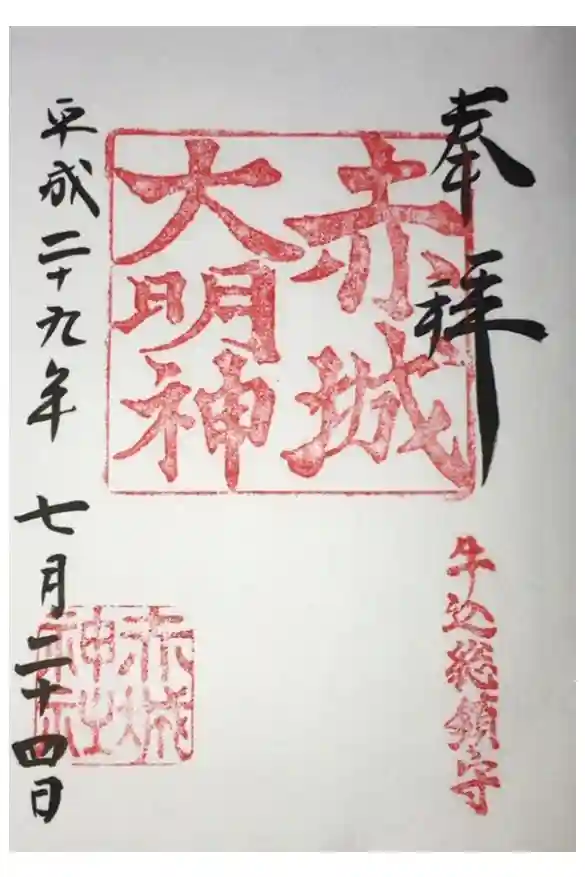 奉拝
牛込総鎮守
赤城
大明神
赤城
神社
平成二十九年 七月二十四日